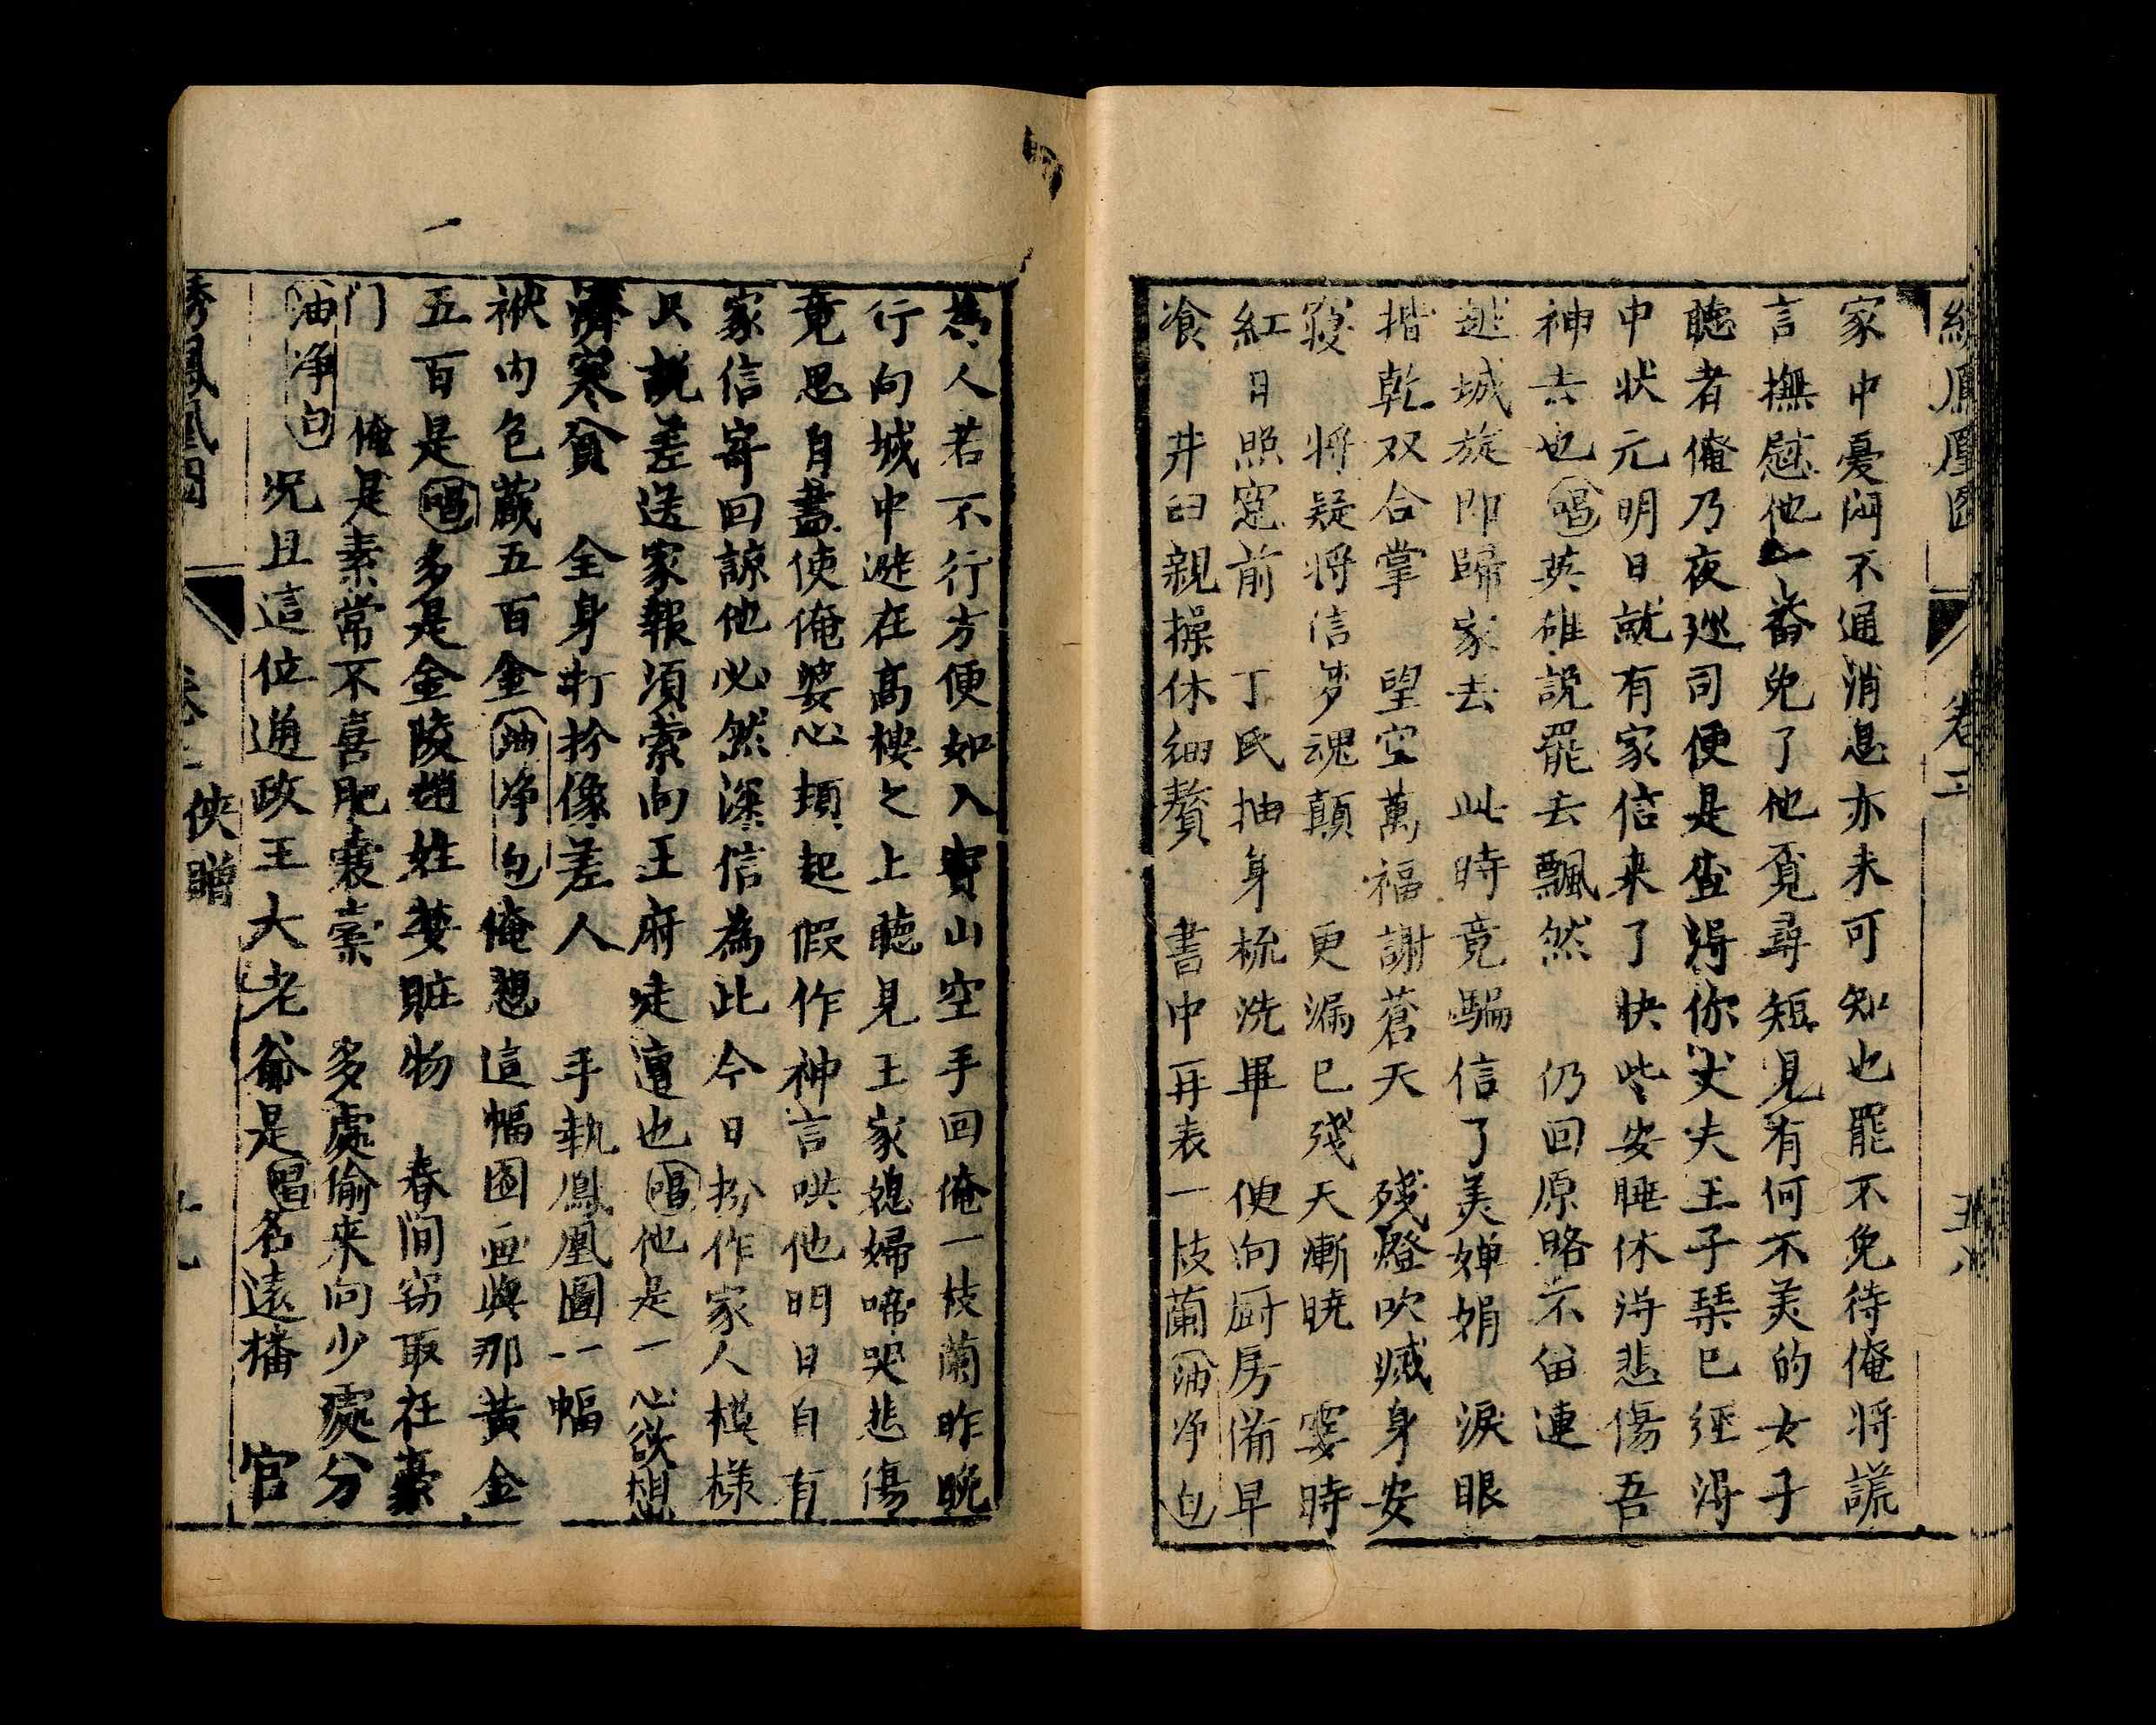 鳳凰图 卷三
家中憂悶不通消息亦未可知也罷不免待俺将謊
言撫慰他一番免了他覓尋短見有何不美的女子
聽者俺乃夜廵司便是查淂你丈夫王子琹已经淂
中状元明日就有家信来了快些安睡休淂悲傷吾
神去也 唱 英雄說罷去飄然 仍回原路不留連
越城旋即歸家去 此時竟騙信了美嬋娟 淚眼
揩乾双合掌 望空萬福謝蒼天 殘燈吹滅身安
寢 将疑将信夢魂顛 更漏已殘天漸暁 霎時
紅日照窓前 丁氏抽身梳洗畢 便向厨房備早
飡 井臼親操休細贅 書中再表一枝蘭 油净白
為人若不行方便如入寳山空手回俺一枝蘭昨晚
行向城中避在高樓之上聽見王家媳婦啼哭悲傷
竟思自盡使俺婆心頓起假作神言哄他明日自有
家信寄回諒他必然深信為此今日扮作家人模様
只說差送家報湏索向王府走遭也 唱 他是一心欲想
濟寒貧 全身打扮像差人 手執鳳凰圖一幅
袱内包藏五百金 油净白 俺想這幅图画與那黄金
五百是 唱 多是金陵趙姓婪賍物 春间窃取在豪
门 俺是素常不喜肥囊橐 多處偷来向少處分
油净白 况且這位通政王大老爺是 唱 名遠播 官
綉鳳凰图 卷三 侠贈